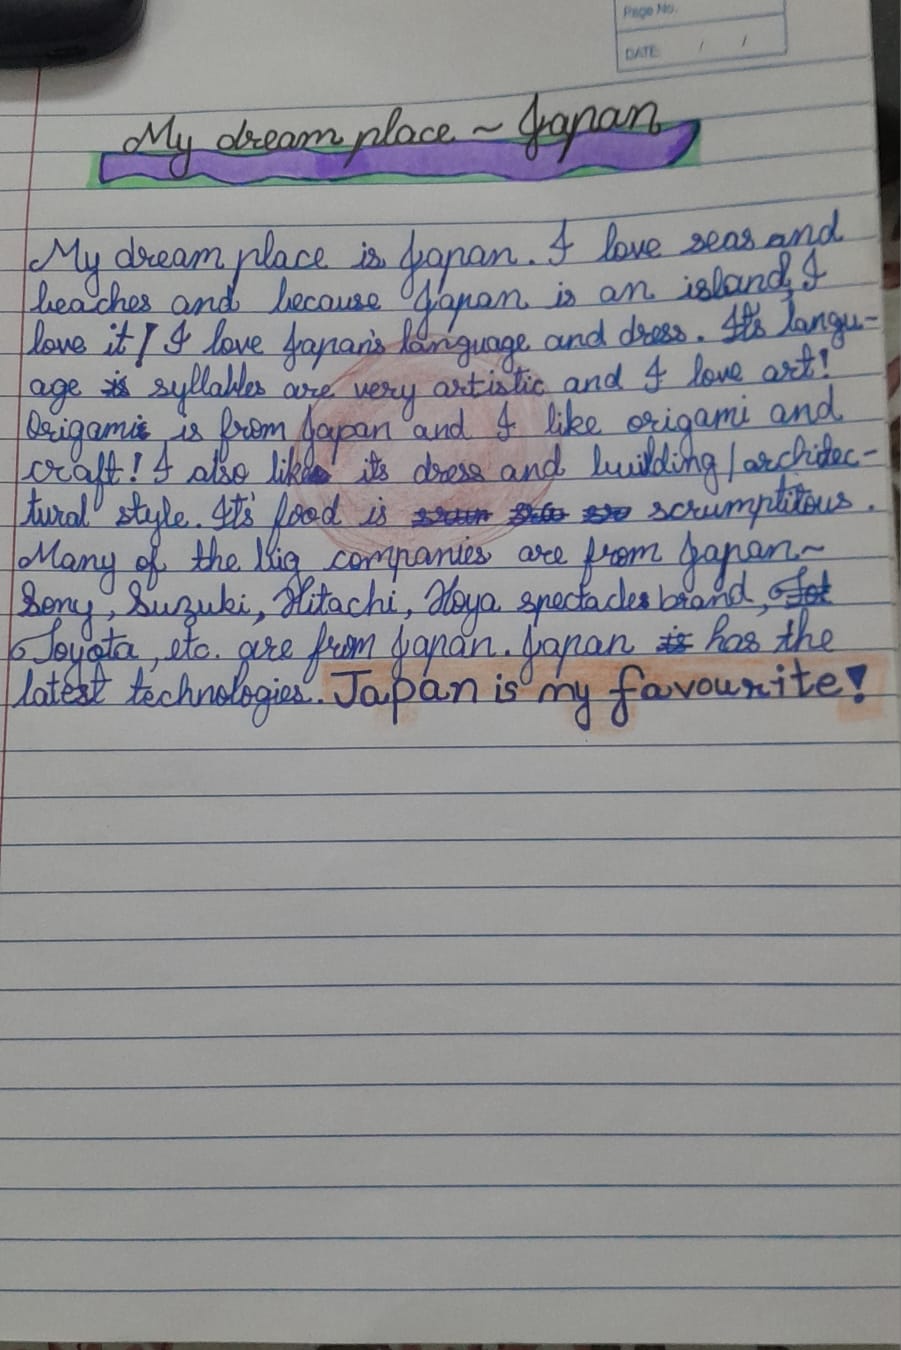 Page No.
DATE: / /
My dream place ~ Japan
My dream place is Japan. I love seas and
beaches and because Japan is an island, I
love it! I love Japan's language and dress. It's langu-
age syllables are very artistic and I love art!
Origami is from Japan and I like origami and
craft! I also like its dress and building/architec-
tural style. It's food is scrumptitous.
Many of the big companies are from Japan~
Sony, Suzuki, Hitachi, Hoya spectacles brand,
Toyota, etc. are from Japan. Japan has the
latest technologies. Japan is my favourite!